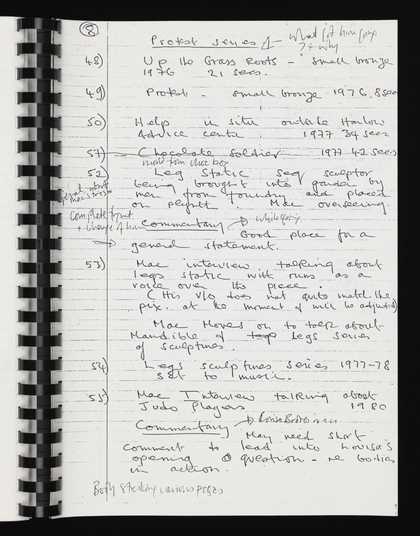 8
Protest series 1 - what for him
? + why
48) Up the Grass Roots - small bronze
1976 21 secs.
49) Protest - small bronze 1976. 8 secs
50) Help in situ outside Harlow
Advice centre. 1977 34 secs
51) Chocolate Soldier 1977 42 secs
made from choc box
52) Leg Static seq sculptor
being brought into garden by
men from foundry and placed
on plynth Mac overseeing.
Complete
+ change of
Commentary
Good place for a
general statement.
53) Mac interview talking about
Legs static with runs as a
voice over the piece.
(This V/O does not quite match the
pix. at the moment & will be adjusted)
Mac Moves on to talk about
Mandible & Legs series
of sculptures.
54) Legs sculptures series 1977-78
set to music.
55) Mac Interview talking about
Judo Players 1980
Commentary
May need short
comment to lead into Louisa's
opening question - re bodies
in action.
Body